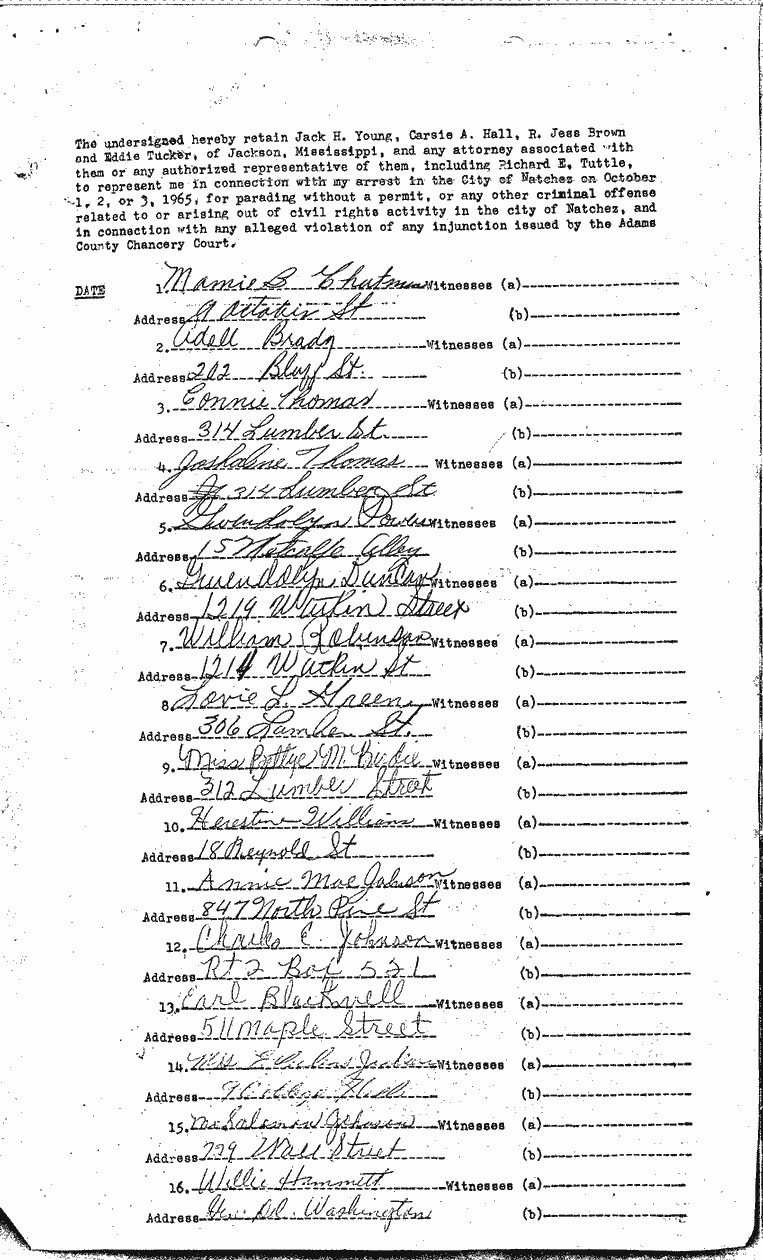 The undersigned hereby retain Jack H. Young, Carsie A. Hall, R. Jess Brown
and Eddie Tucker, of Jackson, Mississippi, and any attorney associated with
them or any authorized representative of them, including Richard E. Tuttle,
to represent me in connection with my arrest in the City of Natchez on October
1, 2, or 3, 1965, for parading without a permit, or any other criminal offense
related to or arising out of civil rights activity in the city of Natchez, and
in connection with any alleged violation of any injunction issued by the Adams
County Chancery Court.
DATE 1. Mamie B Chatman Witnesses (a)
Address 9 St (b)
2. Odell Brady Witnesses (a)
Address 202 Bluff St. (b)
3. Connie Thomas Witnesses (a)
Address 314 Lumber St. (b)
4. Thomas Witnesses (a)
Address 314 Lumber St (b)
5. Gwendolyn Powers Witnesses (a)
Address 15 Metcalfe Alley (b)
6. Gwendolyn Duncan Witnesses (a)
Address 1219 Watkin Street (b)
7. William Robinson Witnesses (a)
Address 1214 Watkin St (b)
8. Lovie L. Green Witnesses (a)
Address 306 St. (b)
9. Miss Bettye McBirdie Witnesses (a)
Address 312 Lumber Street (b)
10. Williams Witnesses (a)
Address 18 Reynold St (b)
11. Annie Mae Johnson Witnesses (a)
Address 847 North Pine St (b)
12. Charles E. Johnson Witnesses (a)
Address Rt 2 Box 521 (b)
13. Earl Blackwell Witnesses (a)
Address 511 Maple Street (b)
14. Mrs. Witnesses (a)
Address 9 College (b)
15. Johnson Witnesses (a)
Address 779 Wall Street (b)
16. Willie Hammett Witnesses (a)
Address Washington (b)